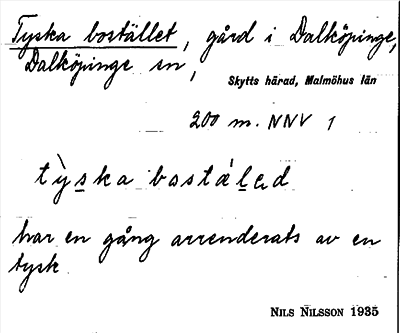 Tyska bostället, gård i Dalköpinge,
Dalköpinge sn,
Skytts härad, Malmöhus län
200 m. NNV 1
tỳska bostálɛd
har en gång arrenderats av en
tysk
NILS NILSSON 1935